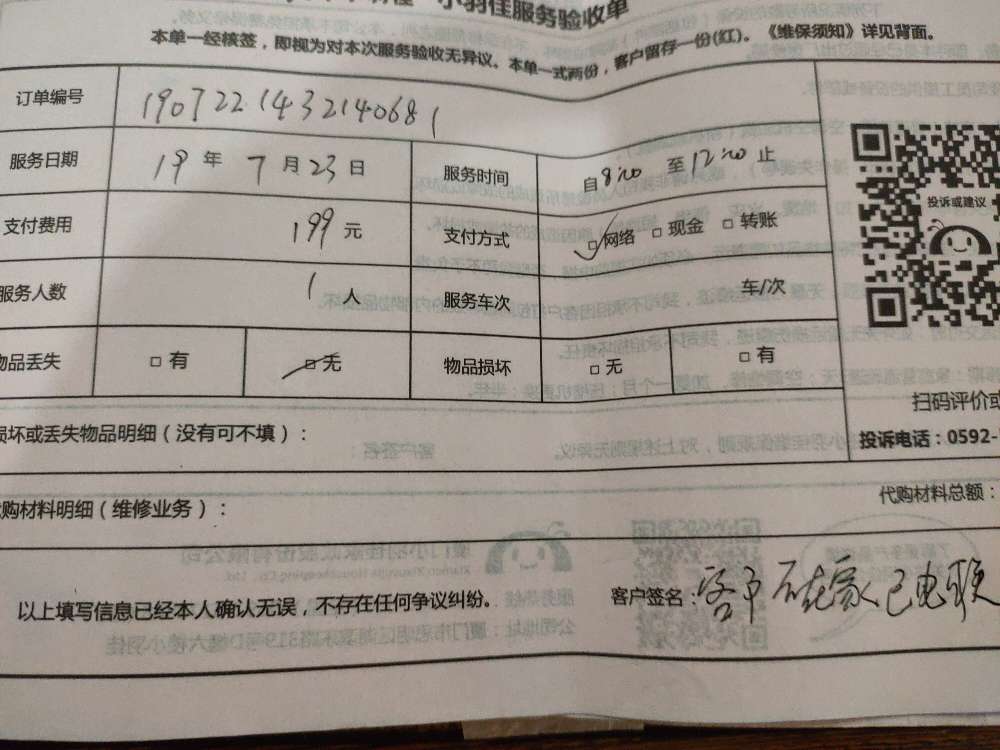 小羽佳服务验收单
本单一经核签，即视为对本次服务验收无异议。本单一式两份，客户留存一份(红)。《维保须知》详见背面。
订单编号 1907221432140681
服务日期 19 年 7 月 23 日 服务时间 自8:00 至12:00 止
支付费用 199 元 支付方式 □网络 □现金 □转账
服务人数 1 人 服务车次 车/次
物品丢失 □有 □无 物品损坏 □无 □有
投诉或建议
扫码评价或
投诉电话：0592-
损坏或丢失物品明细（没有可不填）：
代购材料明细（维修业务）： 代购材料总额：
以上填写信息已经本人确认无误，不存在任何争议纠纷。 客户签名：客户不在家已电联